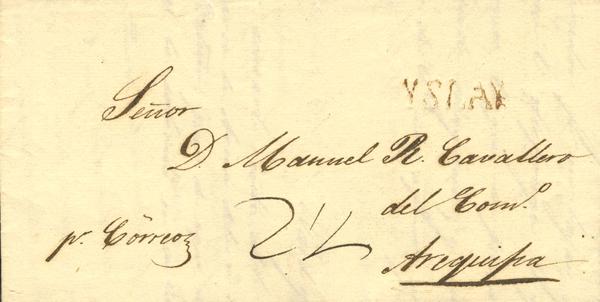 YSLAY
Señor
D. Manuel R. Cavallero
del Com.º
pr. Correo
Arequipa